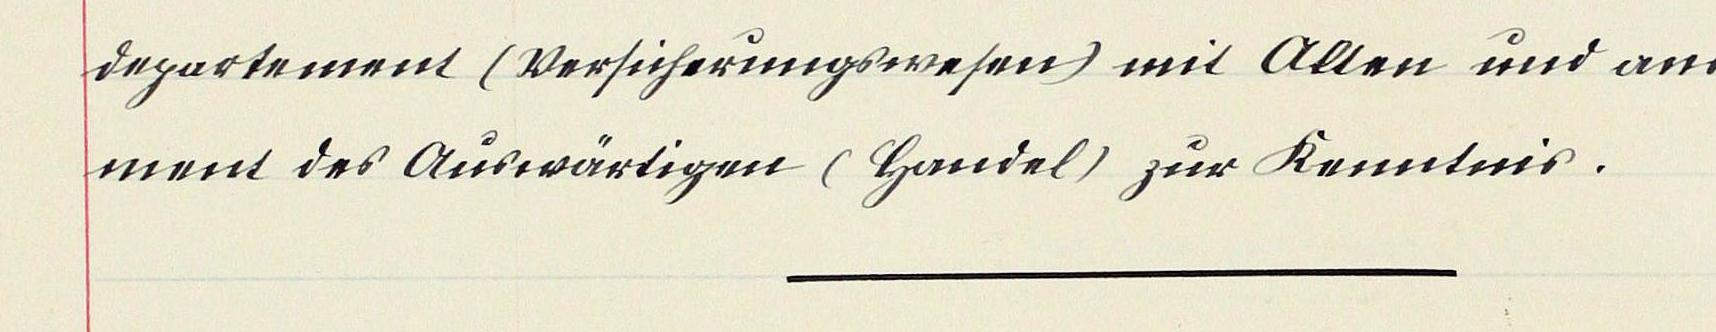 departement (Versicherungswesen) mit Akten und an
ment des Auswärtigen (Handel) zur Kenntnis.